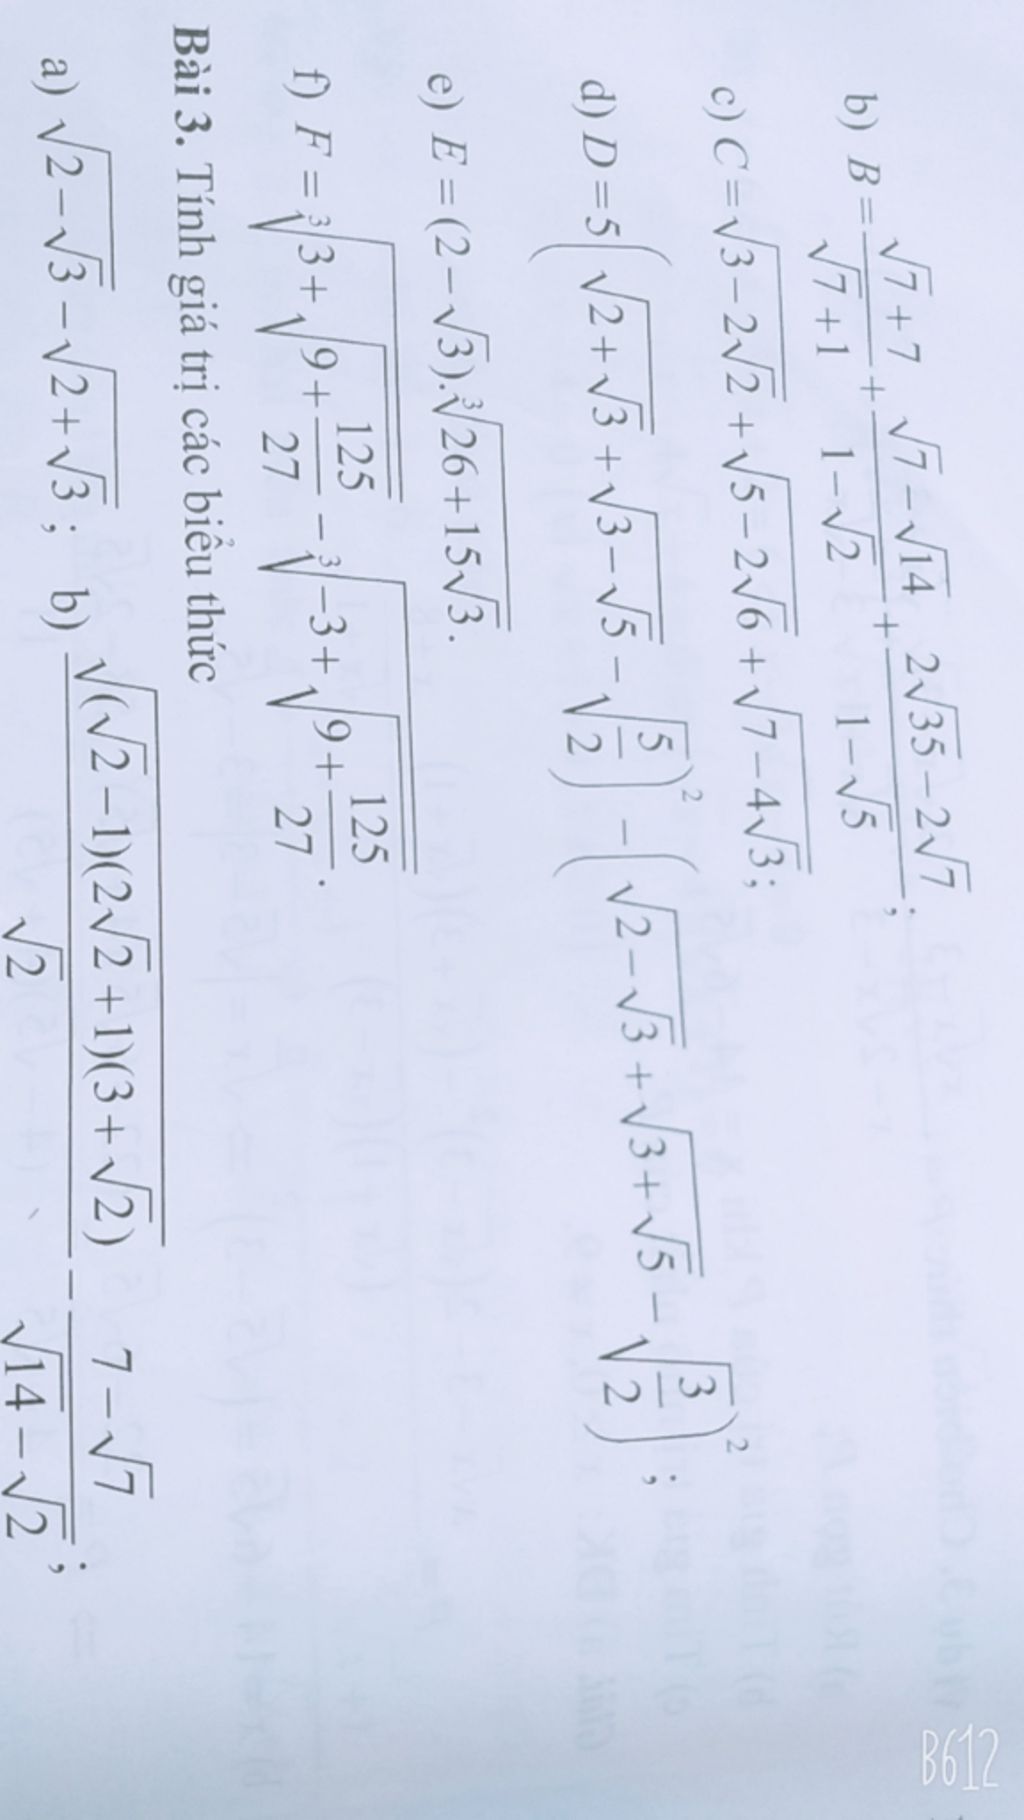 b) B = \frac{\sqrt{7}+7}{\sqrt{7}+1} + \frac{\sqrt{7}-\sqrt{14}}{1-\sqrt{2}} + \frac{2\sqrt{35}-2\sqrt{7}}{1-\sqrt{5}};
c) C = \sqrt{3-2\sqrt{2}} + \sqrt{5-2\sqrt{6}} + \sqrt{7-4\sqrt{3}};
d) D = 5\left(\sqrt{2+\sqrt{3}} + \sqrt{3-\sqrt{5}} - \sqrt{\frac{5}{2}}\right)^2 - \left(\sqrt{2-\sqrt{3}} + \sqrt{3+\sqrt{5}} - \sqrt{\frac{3}{2}}\right)^2;
e) E = (2-\sqrt{3}).\sqrt[3]{26+15\sqrt{3}}.
f) F = \sqrt[3]{3+\sqrt{9+\frac{125}{27}}} - \sqrt[3]{-3+\sqrt{9+\frac{125}{27}}}.
Bài 3. Tính giá trị các biểu thức
a) \sqrt{2-\sqrt{3}} - \sqrt{2+\sqrt{3}}; b) \frac{\sqrt{(\sqrt{2}-1)(2\sqrt{2}+1)(3+\sqrt{2})}}{\sqrt{2}} - \frac{7-\sqrt{7}}{\sqrt{14}-\sqrt{2}};
B612